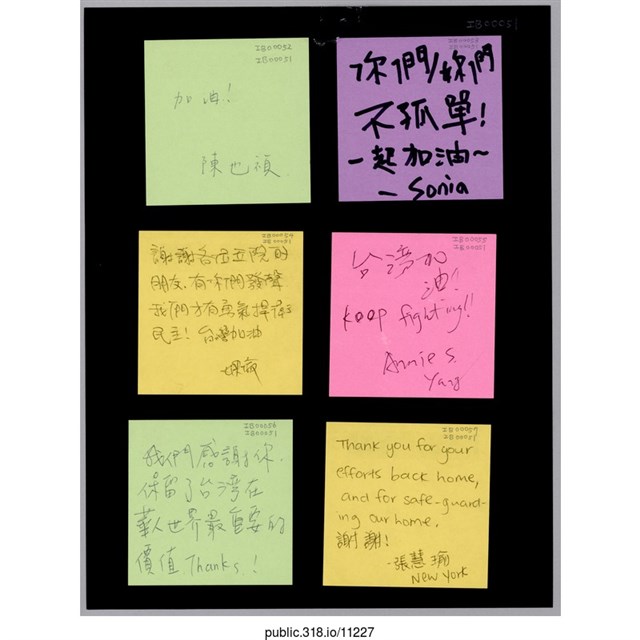 IB00051
IB00052
IB00051
加油!
陳也禎
你們/妳們
不孤單!
一起加油~
- Sonia
IB00054
IB00051
謝謝各位立院的
朋友.有你們發聲
我們才有勇氣捍衛
民主!台灣加油
IB00055
IB00051
台灣加
油!
Keep fighting!!
Annie S.
Yang
IB00056
IB00051
我們感謝你.
保留了台灣在
華人世界最重要的
價值 Thanks.!
IB00051
Thank you for your
efforts back home,
and for safe-guard-
ing our home.
謝謝!
-張慧
New York
public.318.io/11227